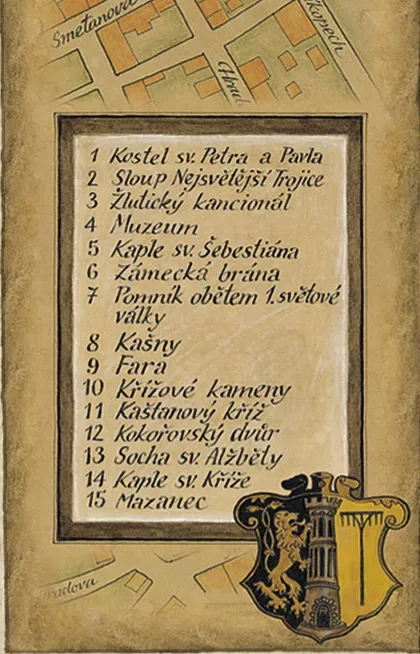 Smetanova
Hrad
Kopech
1 Kostel sv. Petra a Pavla
2 Sloup Nejsvětější Trojice
3 Žlutický kancionál
4 Muzeum
5 Kaple sv. Šebestiána
6 Zámecká brána
7 Pomník obětem 1. světové
války
8 Kašny
9 Fara
10 Křížové kameny
11 Kaštanový kříž
12 Kokořovský dvůr
13 Socha sv. Alžběty
14 Kaple sv. Kříže
15 Mazanec
radova